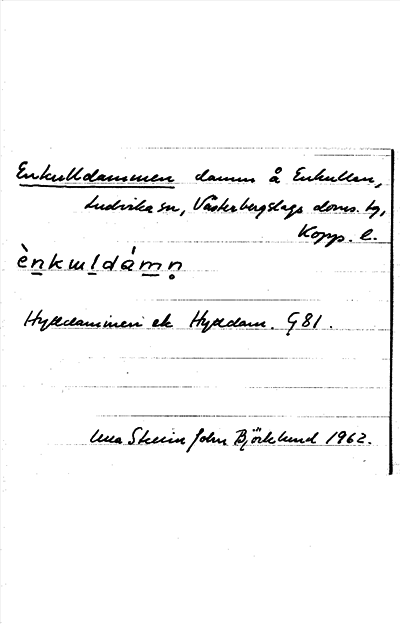 Enkulldammen damm å Enkullen,
Ludvika sn, Västerbergslags doms. tg,
Kopp. l.
ènkɯldám̥n̥
Hyttdammen ek Hyttdam. G 81.
Stein John Björklund 1962.